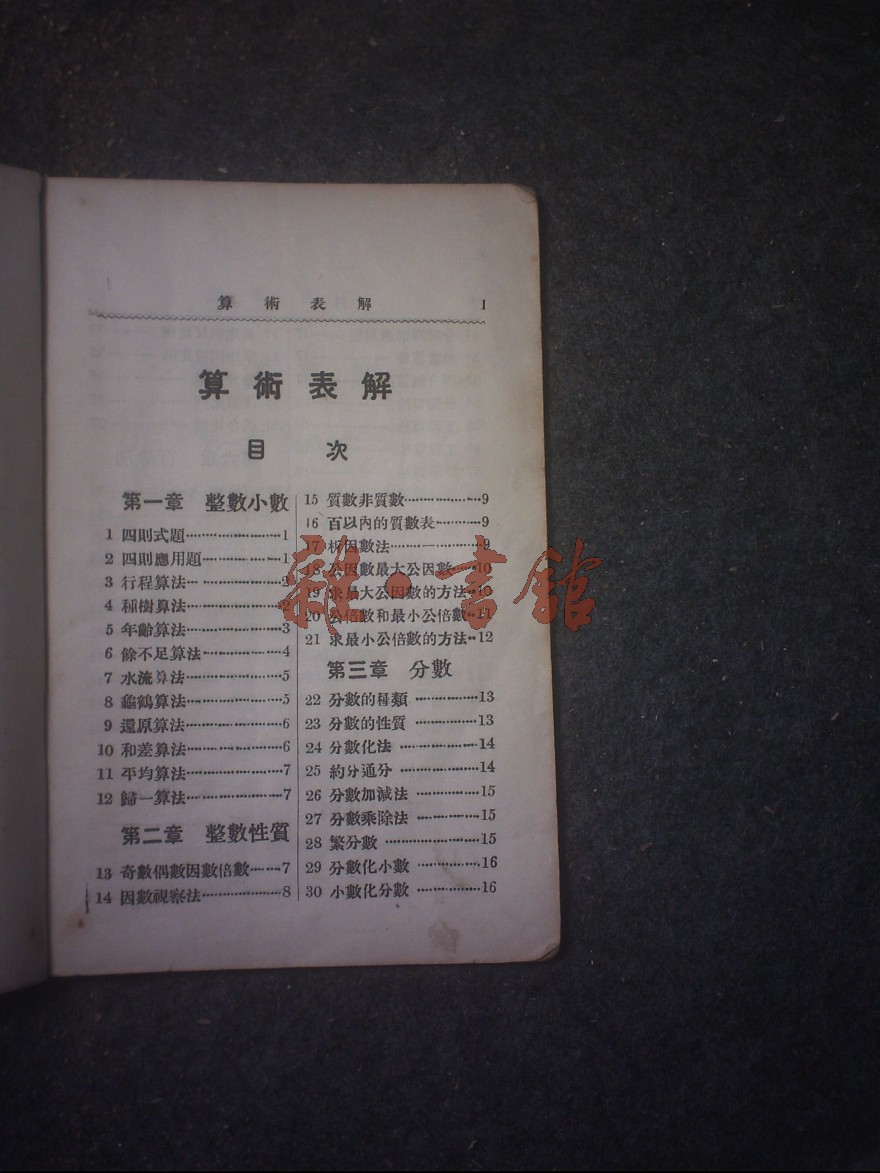 算術表解 1
算術表解
目次
第一章 整數小數
1 四則式題·····················1
2 四則應用題·················1
3 行程算法·····················2
4 種樹算法·····················2
5 年齡算法·····················3
6 餘不足算法·················4
7 水流算法·····················5
8 龜鶴算法·····················5
9 還原算法·····················6
10 和差算法·····················6
11 平均算法·····················7
12 歸一算法·····················7
第二章 整數性質
13 奇數偶數因數倍數·······7
14 因數視察法·················8
15 質數非質數·················9
16 百以內的質數表···········9
17 析因數法·····················9
18 公因數最大公因數·····10
19 求最大公因數的方法··10
20 公倍數和最小公倍數··11
21 求最小公倍數的方法··12
第三章 分數
22 分數的種類···············13
23 分數的性質···············13
24 分數化法···················14
25 約分通分···················14
26 分數加減法···············15
27 分數乘除法···············15
28 繁分數·······················15
29 分數化小數···············16
30 小數化分數···············16
雜·書館